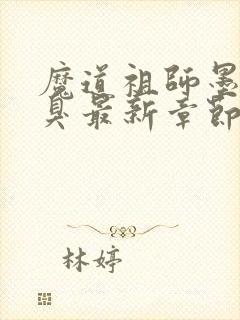 魔道祖師墨
臭最新章節
林婷